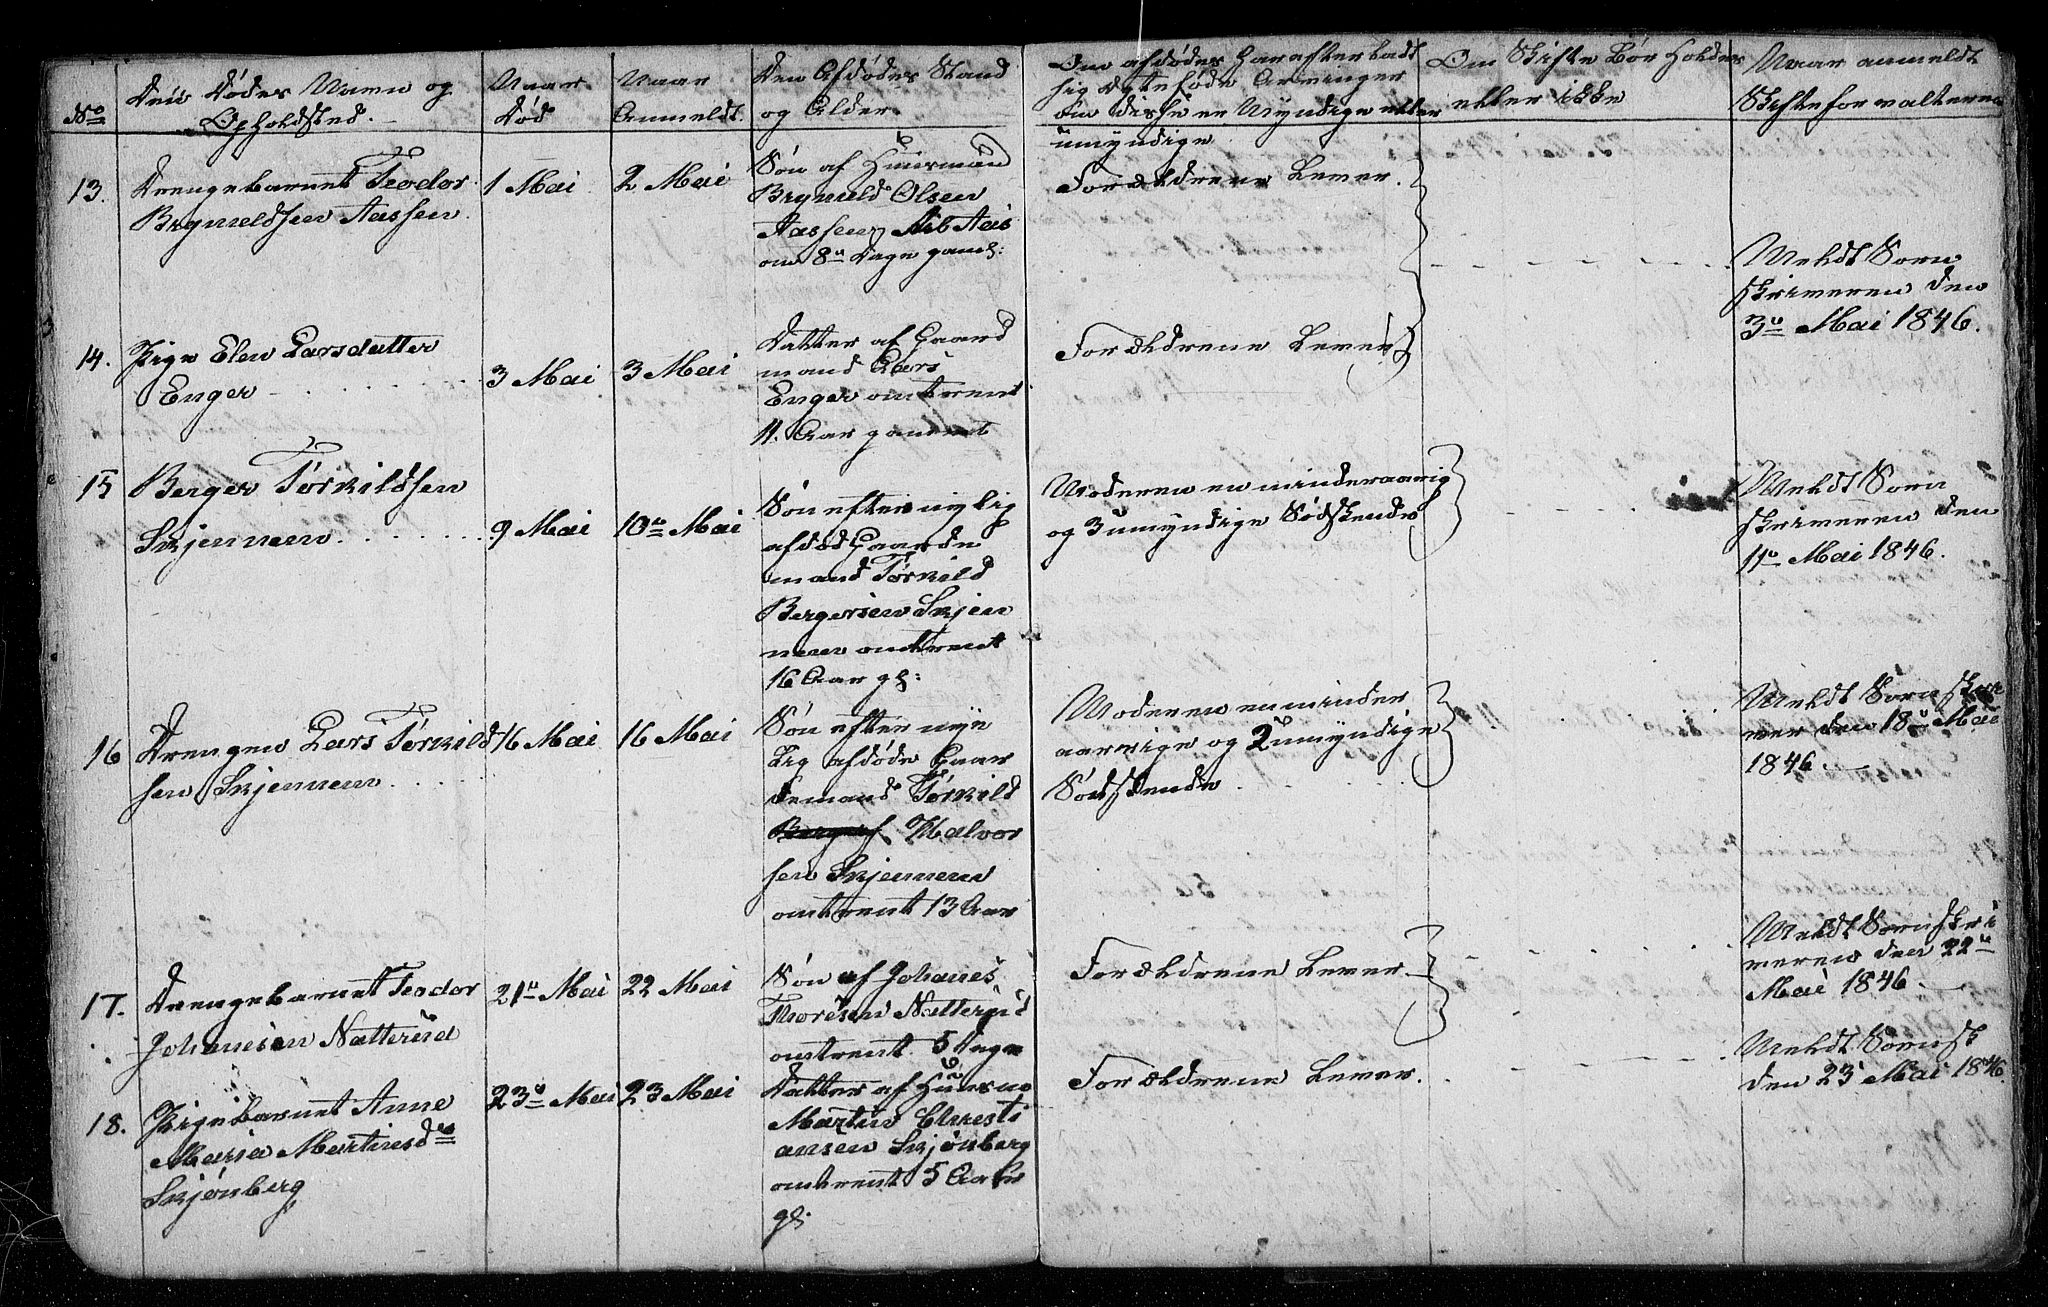 No
Den Dødes Navn og
Opholdsted.
Naar
Død
Naar
Anmeldt.
Den Afdødes Stand
og Alder
Om afdødes har efterladt
sig Arvinger
om disse er Myndige eller
umyndige
Om Skifte bør Holdes
eller ikke
Naar anmeldt
Skifteforvalteren
13.
Drengebarnet Teodor
Brynieldsen Aassen.
1 Mai
2 Mai
Søn af Huusmand
Brynield Olsen
Aassen
om 8te Dage gaml:
Forældrene Lever.
Meldt Soren
skriveren den
3de Mai 1846.
14.
Pige Elen Larsdatter
Enger
3 Mai
3 Mai
Datter af Gaard
mand Lars
Enger omtrent
11. Aar gammel
Forældrene Lever
15
Berger Torkildsen
Skjennem
9 Mai
10de Mai
Søn efter nylig
afdød Gaarde
mand Torkild
Bergersen Skjen
nem omtrent
16 Aar gl:
Moderen en minderaarig
og 3 umyndige Sødskende
Meldt Soren
skriveren den
11te Mai 1846.
16
Drengen Lars Torkild
sen Skjennem
16 Mai
16 Mai
Søn efter nye
lig afdøde Gaar
demand Torkild
Halvor
sen Skjennem
omtrent 13 Aar
Moderen en minder
aarige og 2 umyndige
Sødskende
Meldt Sorenskri
ver den 18de Mai
1846.
17.
Drengebarnet Teodor
Johanesen Nætterud
21de Mai
22 Mai
Søn af Johanes
Thoresen Nætterud
omtrent 5 Dage
Forældrene Lever.
Meldt Sorenskri
veren den 22de
Mai 1846.
18.
Pigebarnet Anne
Maria Martinsd
Skjønberg
23de Mai
23 Mai
Datter af Huusma
Martin Christi
ansen Skjønberg
omtrent 5 Aar
gl.
Forældrene Lever.
Meldt Sorensk
den 23 Mai 1846.